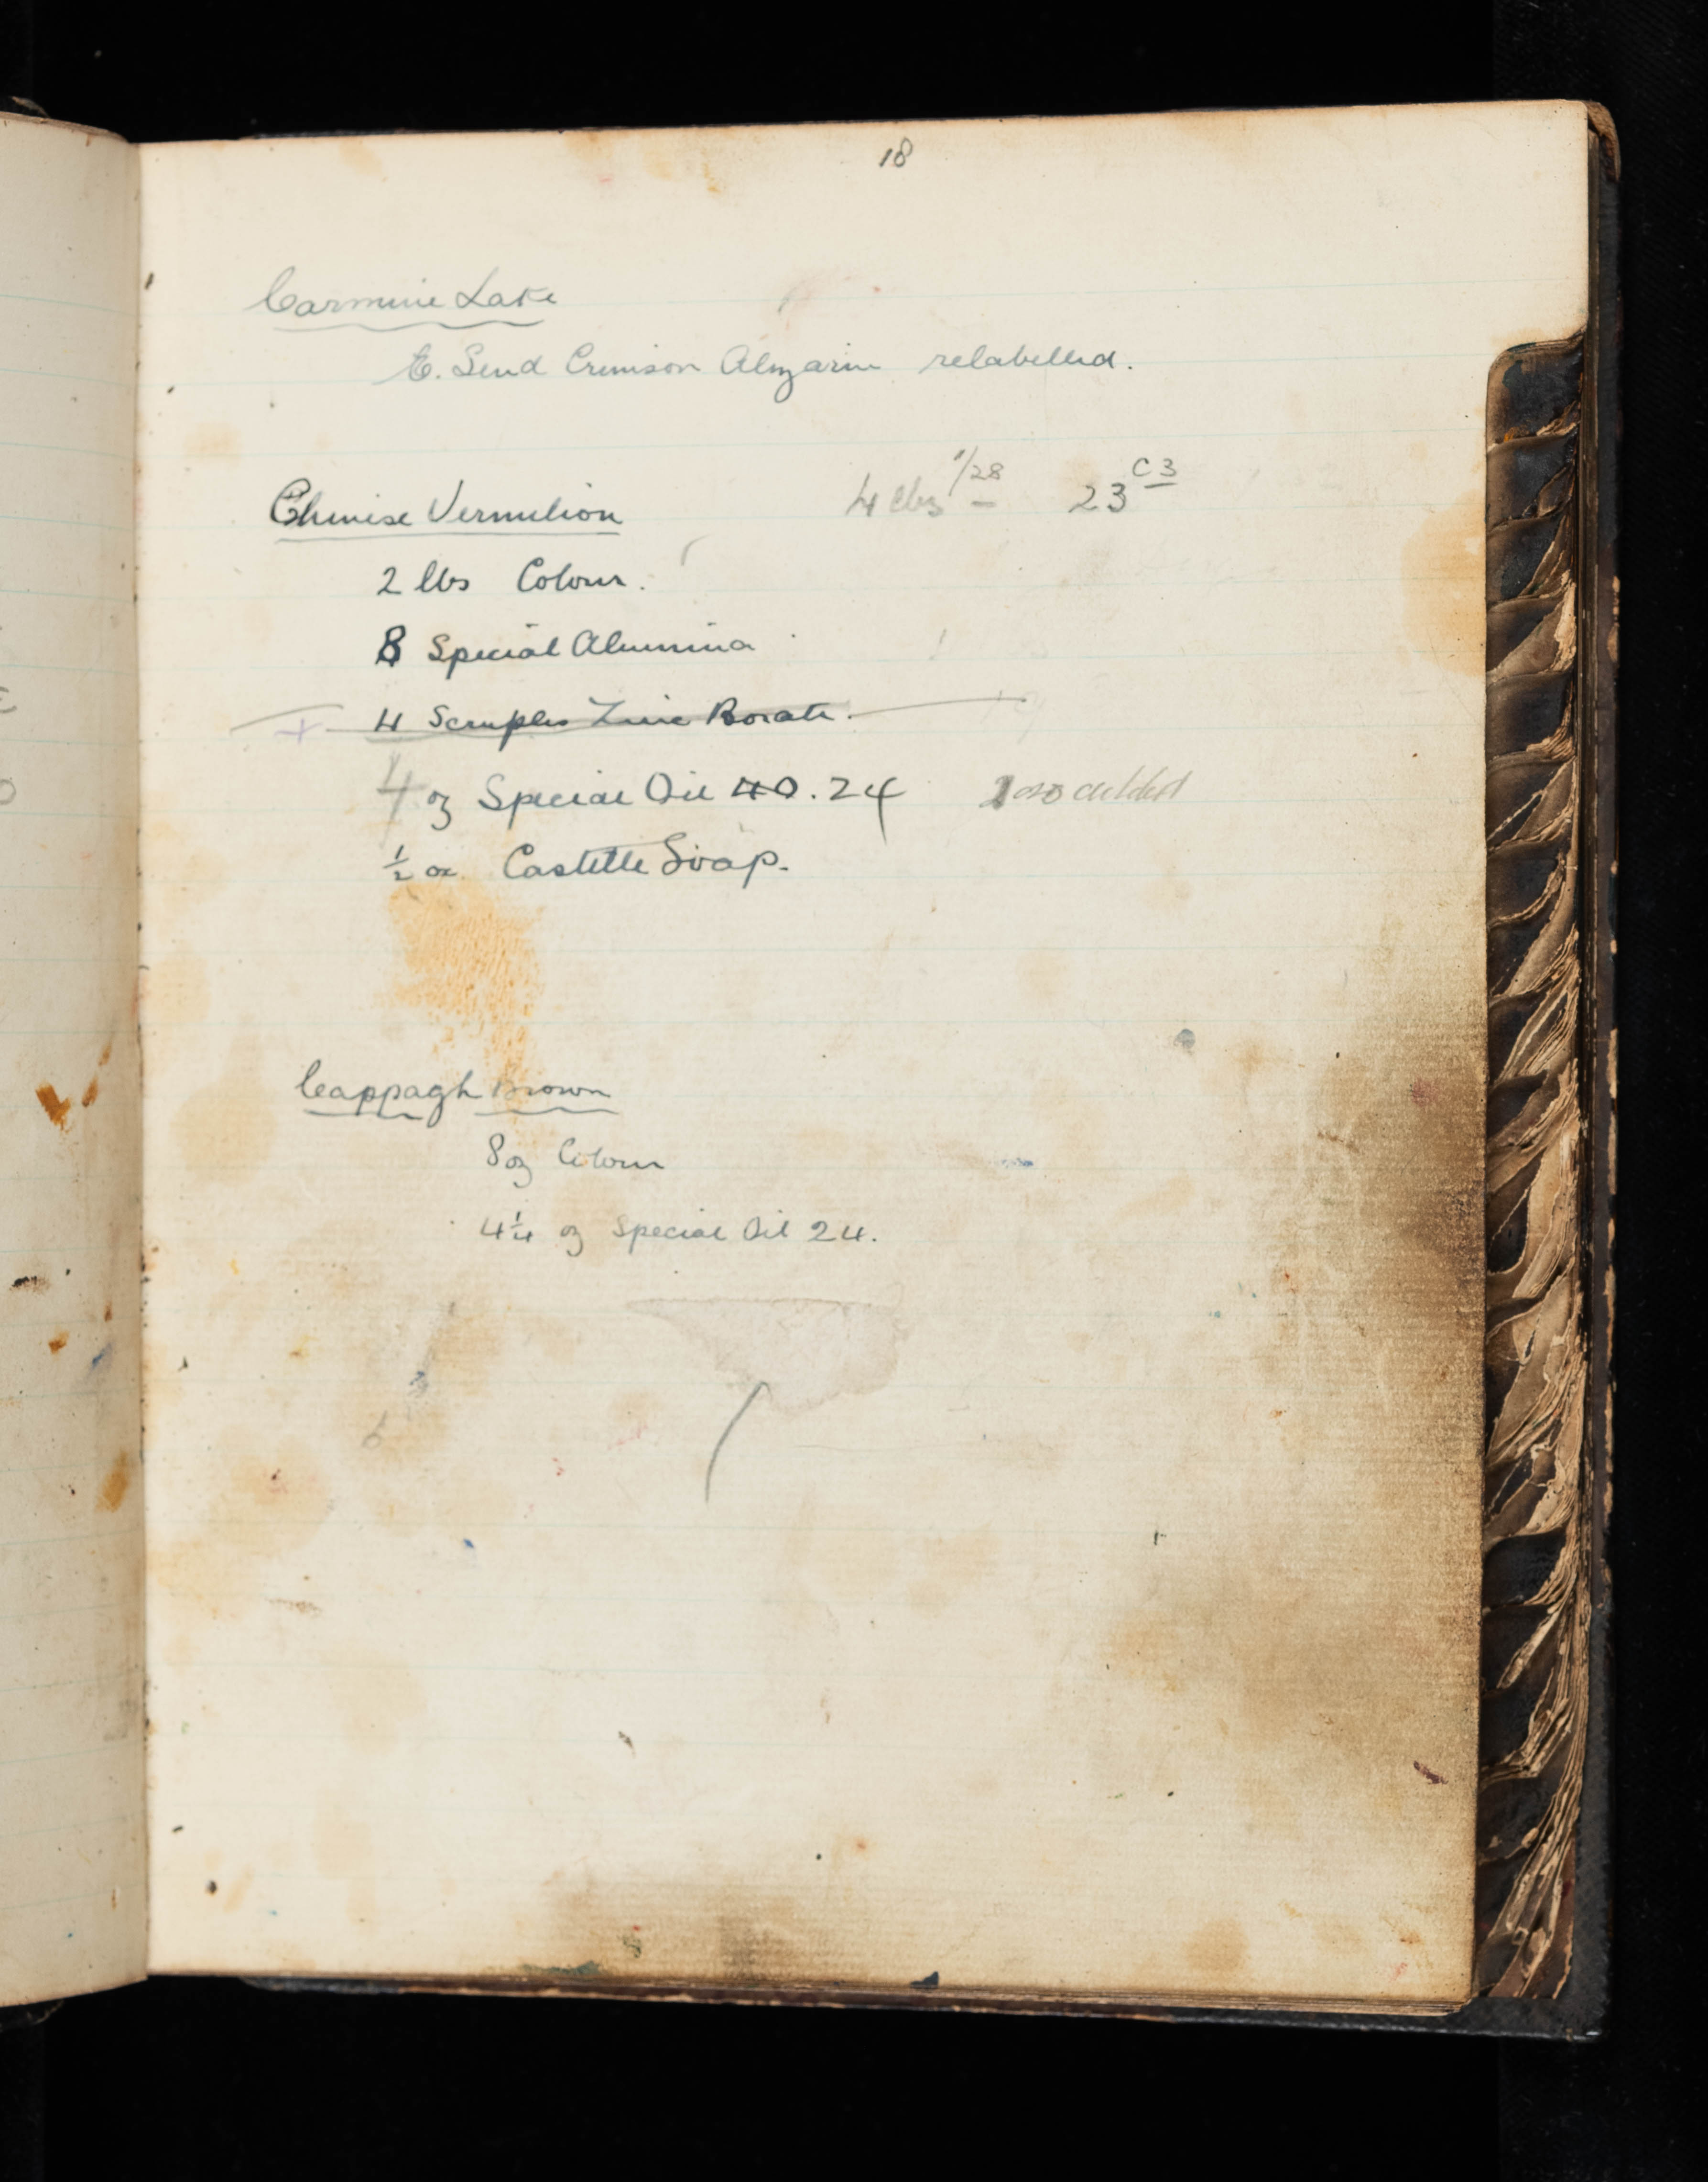 18
Carmine Lake
E. Send Crimson Alizarin relabelled.
Chinese Vermilion 4 lbs 1/28 – 23 C3
2 lbs Colour.
8 Special Alumina
4 Scruples Zinc Borate.
4 oz Special Oil 40.24 added
½ oz Castille Soap.
Cappagh Brown
8 oz Colour
4¼ oz Special Oil 24.